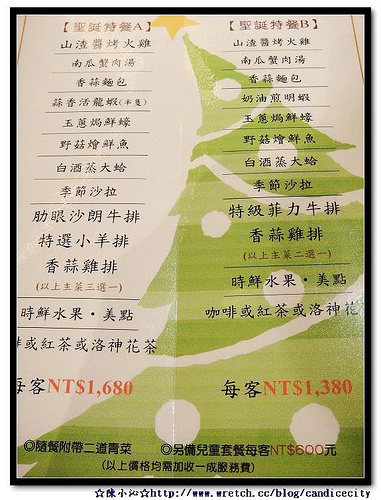 【聖誕特餐A】
山渣醬烤火雞
南瓜蟹肉湯
香蒜麵包
蒜香活龍蝦(半隻)
玉蔥焗鮮蠔
野菇燴鮮魚
白酒蒸大蛤
季節沙拉
肋眼沙朗牛排
特選小羊排
香蒜雞排
(以上主菜三選一)
時鮮水果·美點
啡或紅茶或洛神花茶
每客NT$1,680
【聖誕特餐B】
山渣醬烤火雞
南瓜蟹肉湯
香蒜麵包
奶油煎明蝦
玉蔥焗鮮蠔
野菇燴鮮魚
白酒蒸大蛤
季節沙拉
特級菲力牛排
香蒜雞排
(以上主菜二選一)
時鮮水果·美點
咖啡或紅茶或洛神花
每客NT$1,380
◎隨餐附帶二道青菜
◎另備兒童套餐每客NT$600元
(以上價格均需加收一成服務費)
☆陳小沁☆http://www.wretch.cc/blog/candicecity